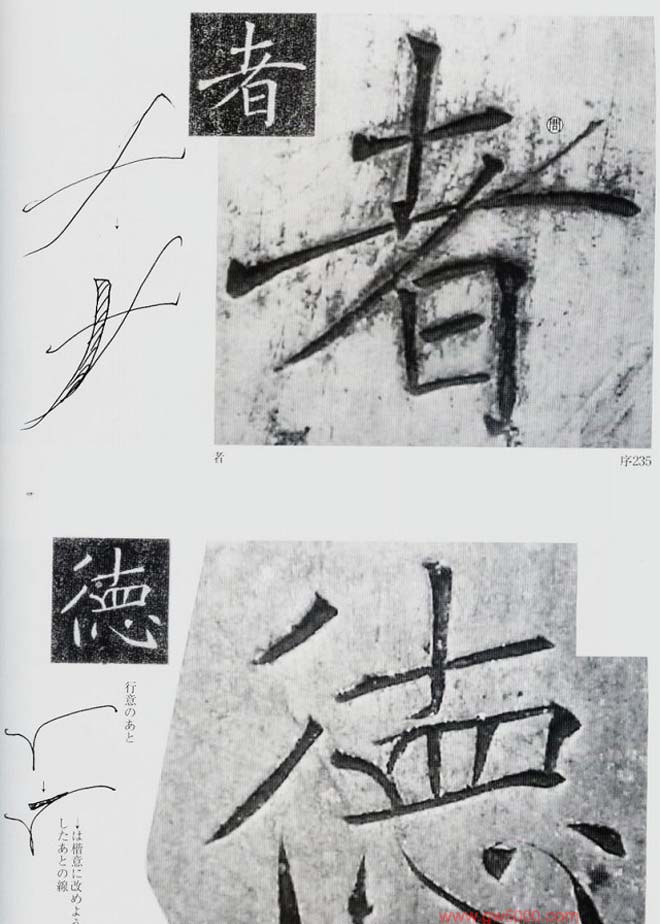 者
者
間
者
序235
徳
徳
行意のあと
↓は楷意に改めよう
したあとの線